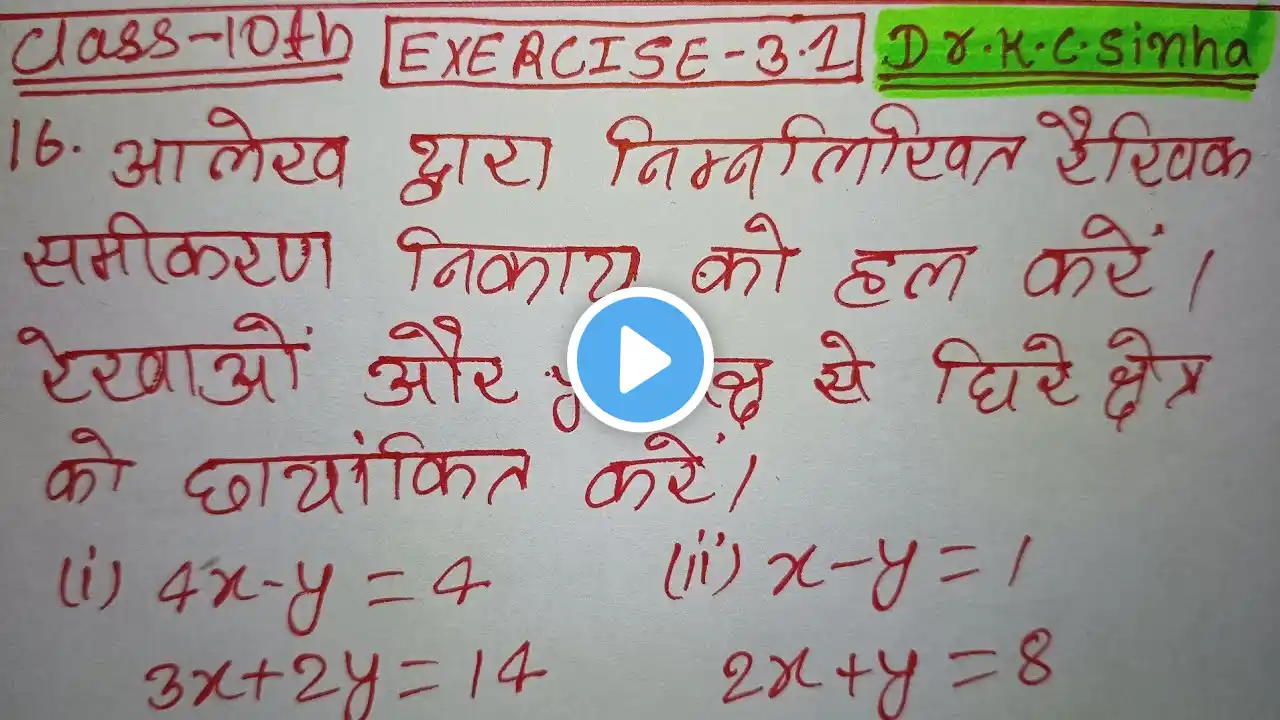 Class-10th EXERCISE-3.1 Dr.K.C.Sinha
16. आलेख द्वारा निम्नलिखित रैखिक
समीकरण निकाय को हल करें।
रेखाओं और से घिरे क्षेत्र
को छायांकित करें।
(i) 4x-y=4 (ii) x-y=1
3x+2y=14 2x+y=8